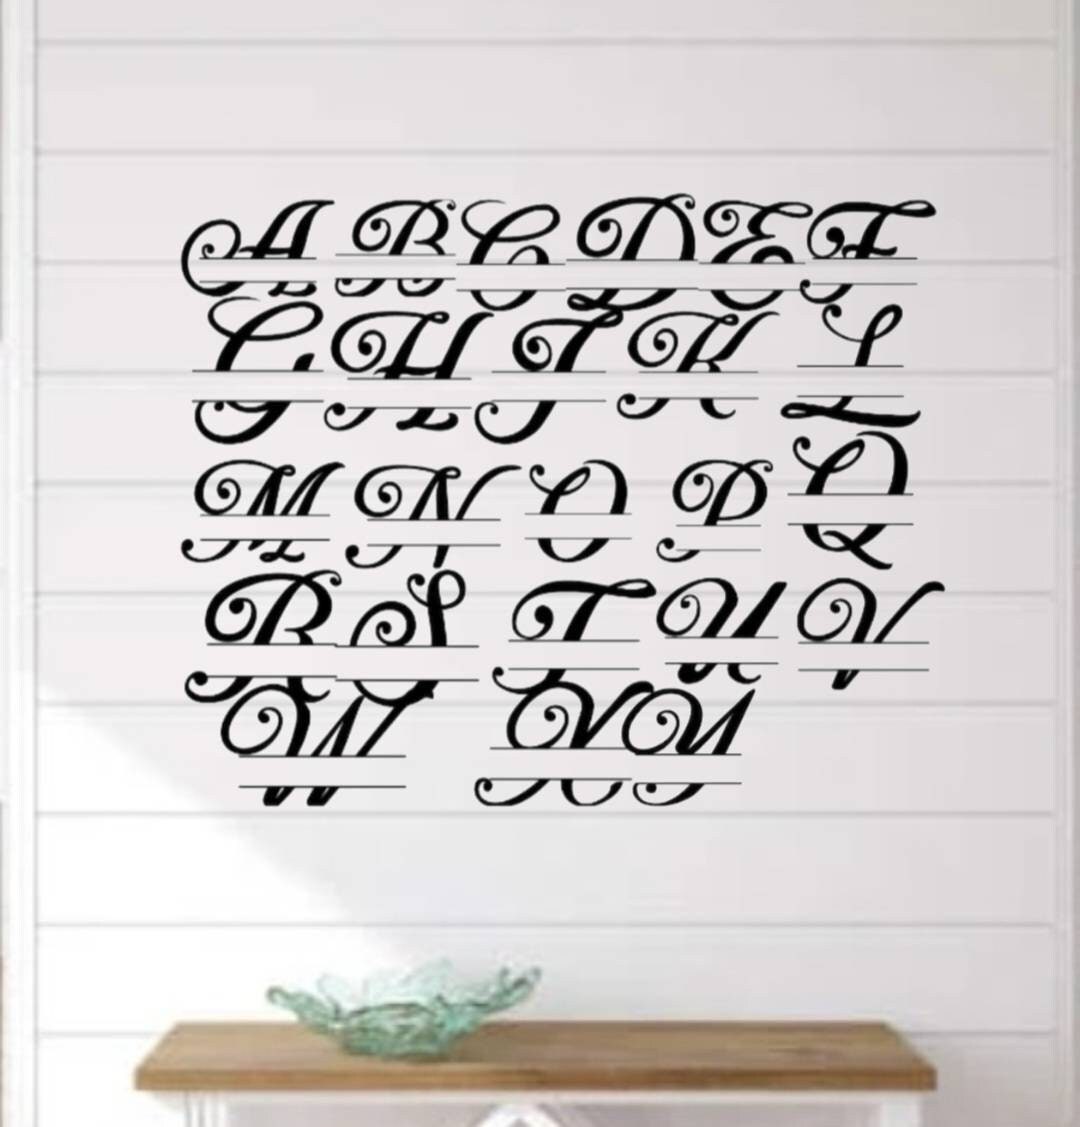 A B C D E F
G H J K L
M N O P Q
R S T U V
W X Y